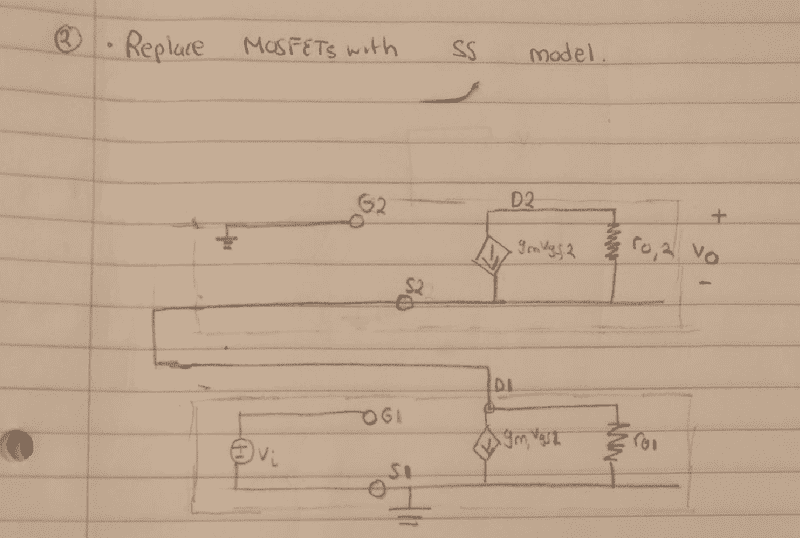 ② . Replace MOSFETs with SS model.
G2
D2
+
gmvgs2
ro,2
vo
-
S2
D1
G1
gm,vgs2
ro1
+
-
Vi
S1